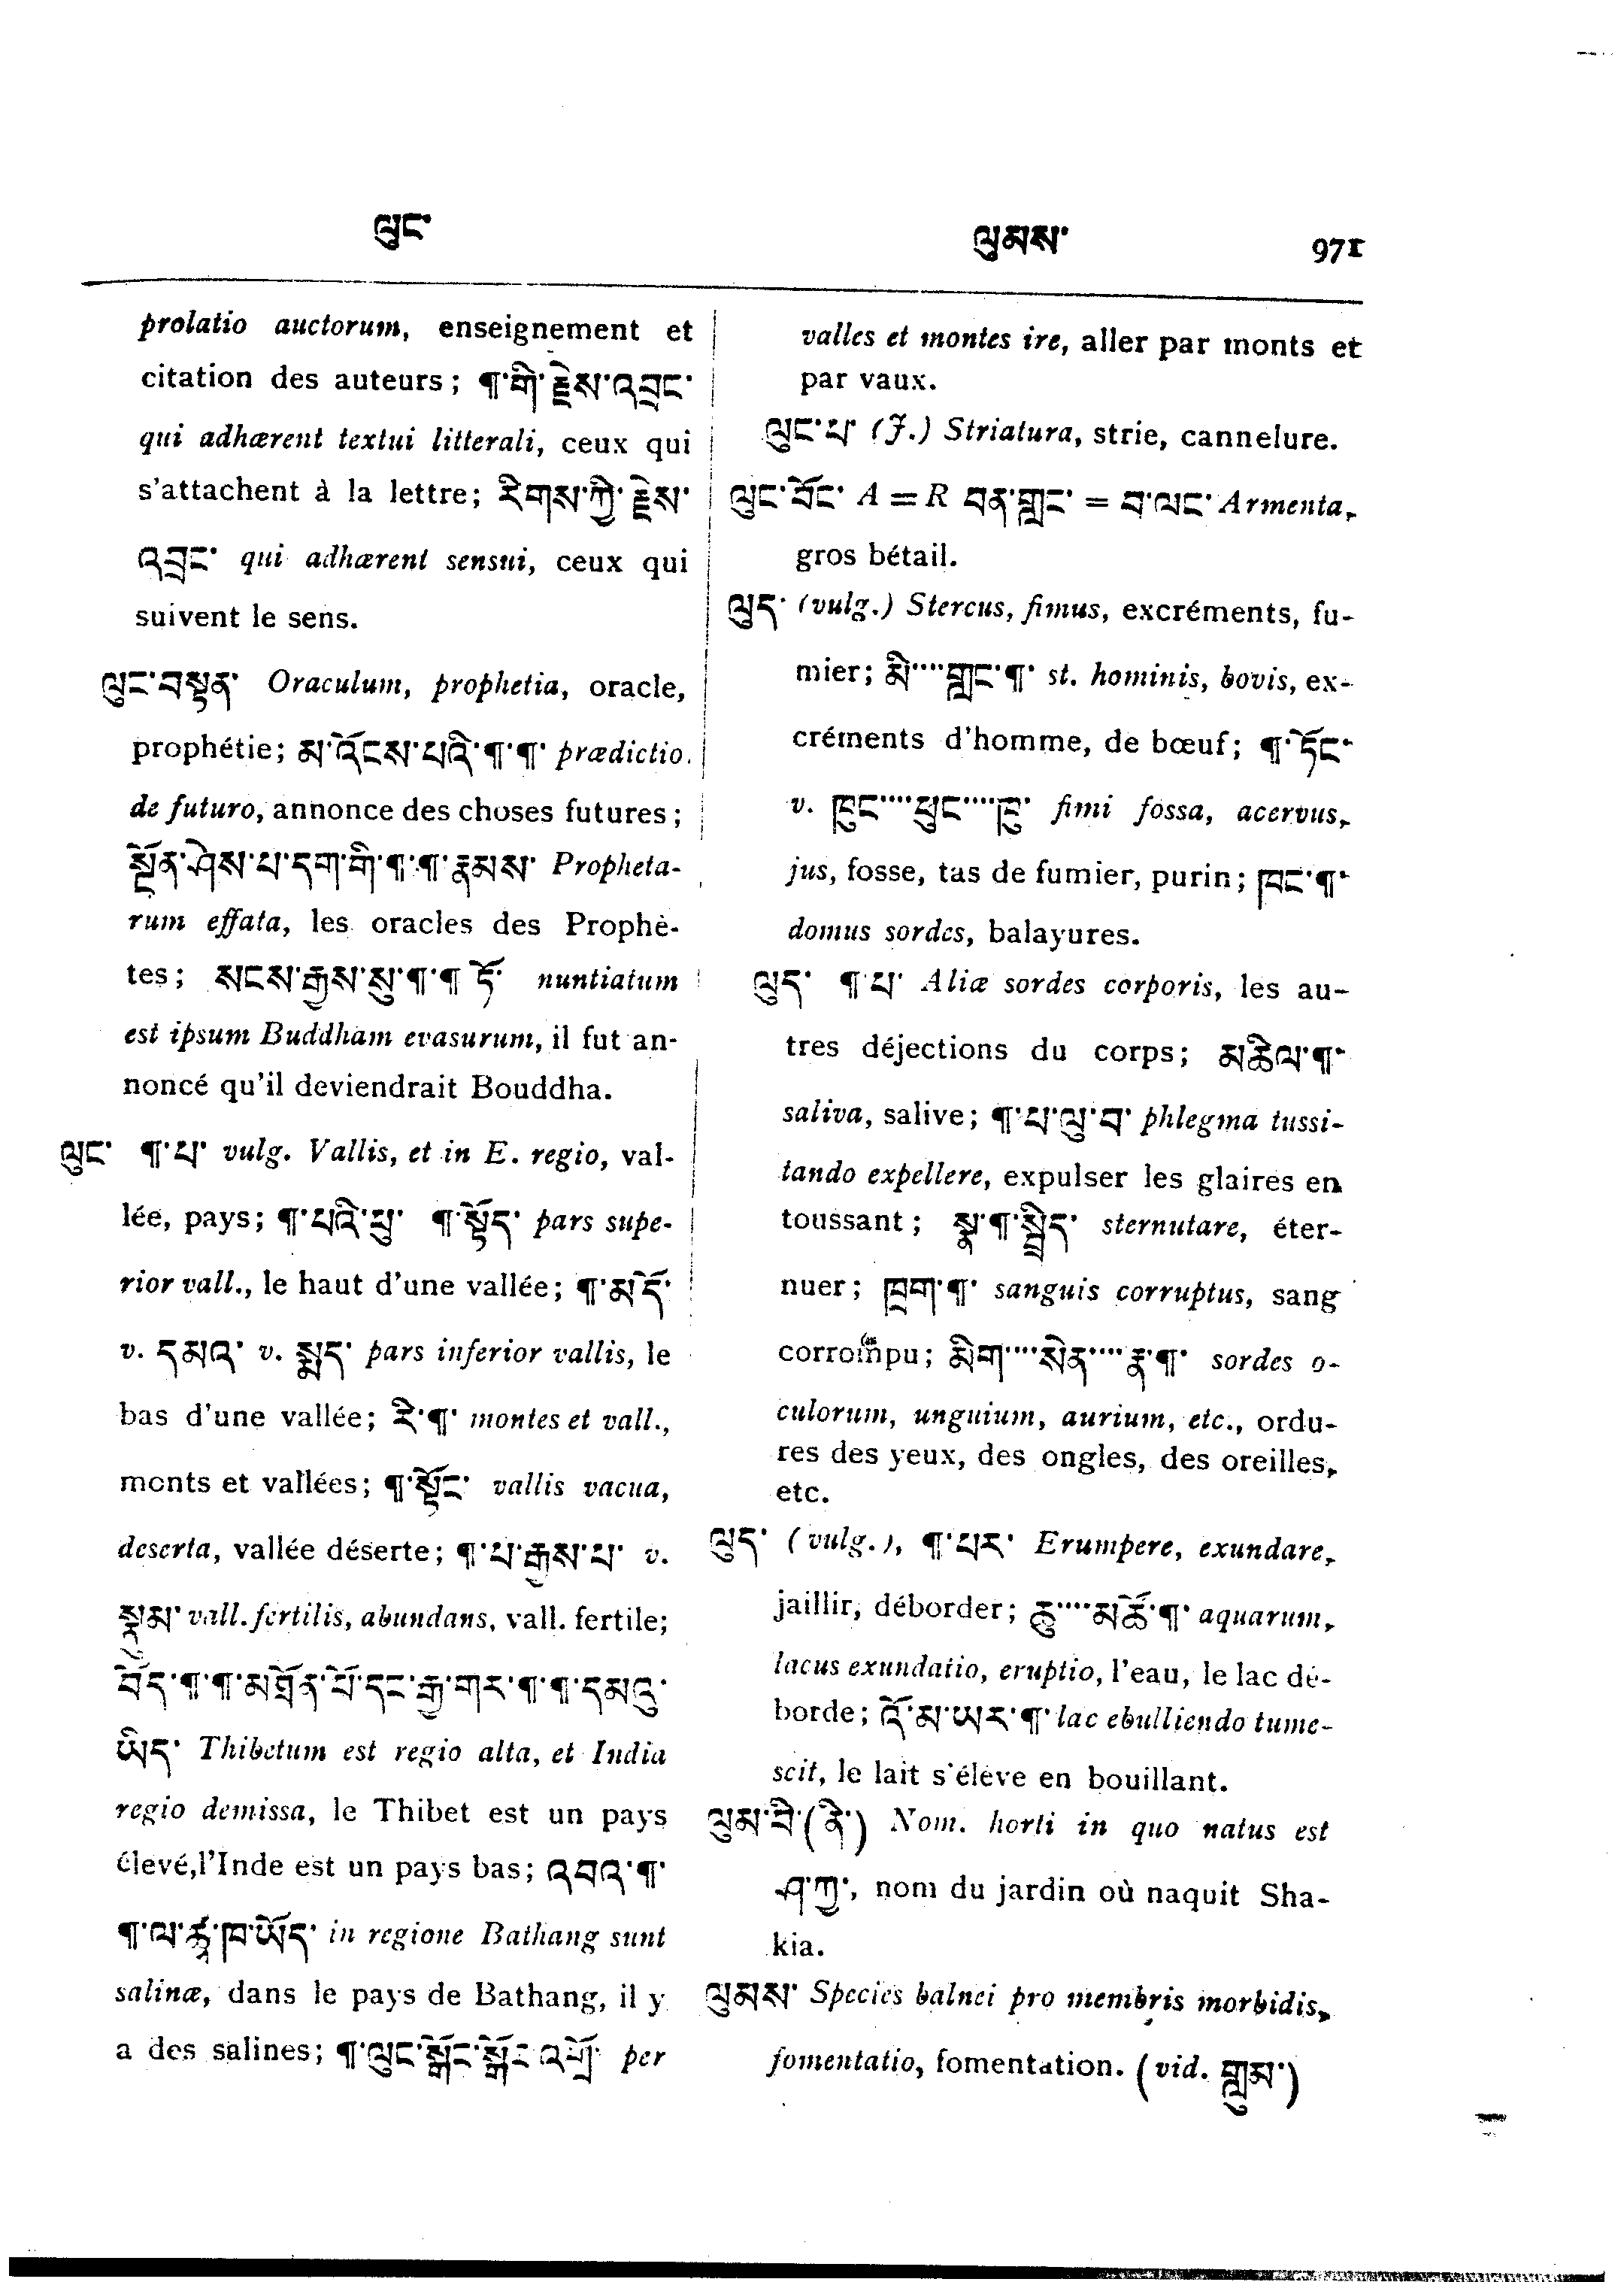 ལུང་
ལུམས་ 971
prolatio auctorum, enseignement et
citation des auteurs; ¶་གི་རྗེས་འབྲང་
qui adhærent textui litterali, ceux qui
s'attachent à la lettre; རིགས་ཀྱི་རྗེས་
འབྲང་ qui adhærent sensui, ceux qui
suivent le sens.
ལུང་བསྟན་ Oraculum, prophetia, oracle,
prophétie; མ་འོངས་པའི་¶་¶་ prædictio
de futuro, annonce des choses futures;
སྔོན་ཤེས་པ་དག་གི་¶་¶་རྣམས་ Propheta-
rum effata, les oracles des Prophè-
tes; སངས་རྒྱས་སུ་¶་¶ ཏོ་ nuntiatum
est ipsum Buddham evasurum, il fut an-
noncé qu'il deviendrait Bouddha.
ལུང་ ¶་པ་ vulg. Vallis, et in E. regio, val-
lée, pays; ¶་པའི་ཕུ་ ¶་སྟོད་ pars supe-
rior vall., le haut d'une vallée; ¶་མདོ་
v. དམའ་ v. སྨད་ pars inferior vallis, le
bas d'une vallée; རི་¶་ montes et vall.,
monts et vallées; ¶་སྟོང་ vallis vacua,
deserta, vallée déserte; ¶་པ་རྒྱས་པ་ v.
སྣུམ་ vall. fertilis, abundans, vall. fertile;
བོད་¶་¶་མཐོན་པོ་དང་རྒྱ་གར་¶་¶་དམའུ་
ཡིད་ Thibetum est regio alta, et India
regio demissa, le Thibet est un pays
élevé,l'Inde est un pays bas; འབའ་¶་
¶་ལ་ཚྭ་ཁ་ཡོད་ in regione Bathang sunt
salinæ, dans le pays de Bathang, il y
a des salines; ¶་ལུང་སྒོང་སྒོང་འགྲོ་ per
valles et montes ire, aller par monts et
par vaux.
ལུང་པ་ (J.) Striatura, strie, cannelure.
ལུང་བོང་ A = R བན་གླང་ = བ་ལང་ Armenta,
gros bétail.
ལུད་ (vulg.) Stercus, fimus, excréments, fu-
mier; མི་····གླང་¶་ st. hominis, bovis, ex-
créments d'homme, de bœuf; ¶་དོང་
v. ཁུང་····ཕུང་····ཁུ་ fimi fossa, acervus,
jus, fosse, tas de fumier, purin; ཁང་¶་
domus sordes, balayures.
ལུད་ ¶་པ་ Aliæ sordes corporis, les au-
tres déjections du corps; མཆིལ་¶་
saliva, salive; ¶་པ་ལུ་བ་ phlegma tussi-
tando expellere, expulser les glaires en
toussant; སྣ་¶་སྦྲིད་ sternutare, éter-
nuer; ཁྲག་¶་ sanguis corruptus, sang
corrompu; མིག་····སེན་····རྣ་¶་ sordes o-
culorum, unguium, aurium, etc., ordu-
res des yeux, des ongles, des oreilles,
etc.
ལུད་ (vulg.), ¶་པར་ Erumpere, exundare,
jaillir, déborder; ཆུ་····མཚོ་¶་ aquarum,
lacus exundatio, eruptio, l'eau, le lac dé-
borde; འོ་མ་ཡར་¶་ lac ebulliendo tume-
scit, le lait s'élève en bouillant.
ལུམ་བི་(ནི་) Nom. horti in quo natus est
ཤ་ཀྱ་, nom du jardin où naquit Sha-
kia.
ལུམས་ Species balnei pro membris morbidis,
fomentatio, fomentation. (vid. གླུམ་)